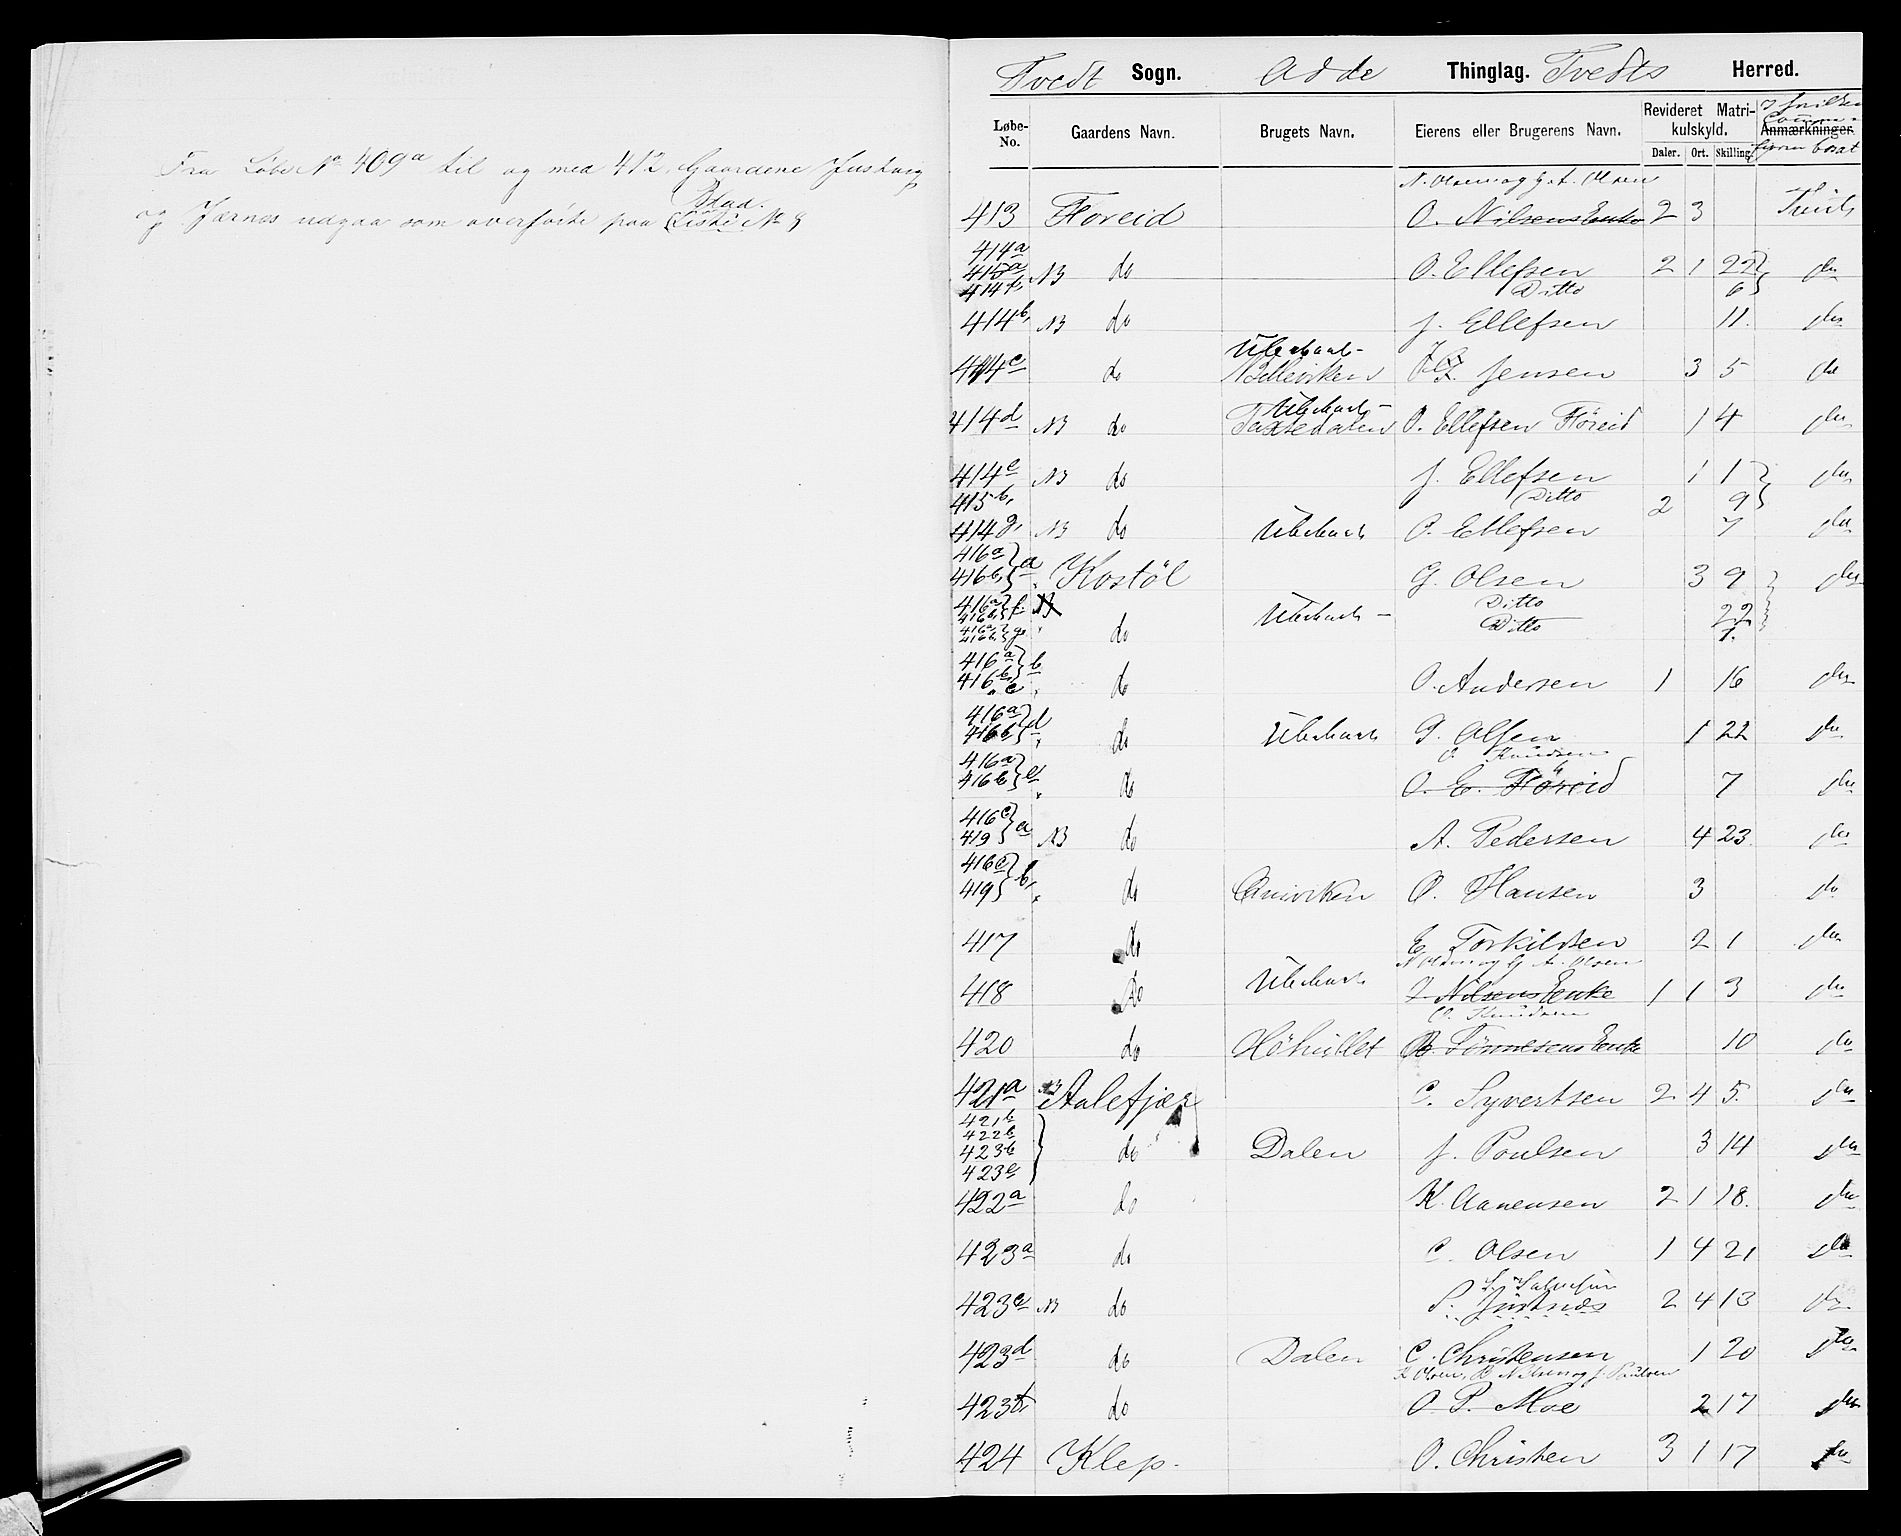 Fra Løbe No 409a til og med 412, Gaardene Justvig
Blad.
og Jærnes udgaa som overførte paa Liste No 8
Tvedt Sogn. Odde Thinglag. Tvedts Herred.
Løbe-No. Gaardens Navn. Brugets Navn. Eierens eller Brugerens Navn. Revideret Matrikulskyld. Anmærkninger.
Daler. Ort. Skilling. Eieren bosat
N. Olsen og G. A. Olsen
413 Floreid O. Nilsens Enke 2 3
414a
415a NB do O. Ellefsen 2 1 22 do
Ditto 6
414b, NB do J. Ellefsen 11. do
Ubeboet
414c do Jensen 3 5 do
Ubeboet
414d NB do O. Ellefsen Flöreid 1 4 do
414e NB do J. Ellefsen 1 1 do
415b, Ditto 2 9
414g, NB do Ubeboet O. Ellefsen 7 do
416a
416b, a Kostöl G. Olsen 3 9 do
416a
416b, f. Ubeboet Ditto 22
416a,
416b, g. do Ditto 1.
416a
416b, b
" c do O. Andersen 1 16 do
416a
416b d do Ubeboet G. Olsen 1 22 do
O. Knudsen
416a
416b e do O. E. Flöreid 7 do
416c
419 a NB do A. Pedersen 4 23. do
416c
419 b, do O. Hansen 3 do
417 do E Torkildsen 2 1 do
N Olsen og G A. Olsen
418 do Ubeboet Nilsens Enke 1 1 3 do
O. Knudsen
420 do Tönnesens Enke 10 do
421a NB Aalefjær C. Syvertsen 2 4 5. do
421b
422b
423b do Dalen J. Poulsen 3 14 do
423c
422a do K. Aanensen 2 1 18. do
423a do C. Olsen 1 4 21 do
423e NB do 2 4 13 do
423d do Dalen C. Christensen 1 20 do
K Olsen, B Nilsen og J. Paulsen
423f, do O. P. Moe 2 17 do
424 Klep. O. Christen 3 1 17 do